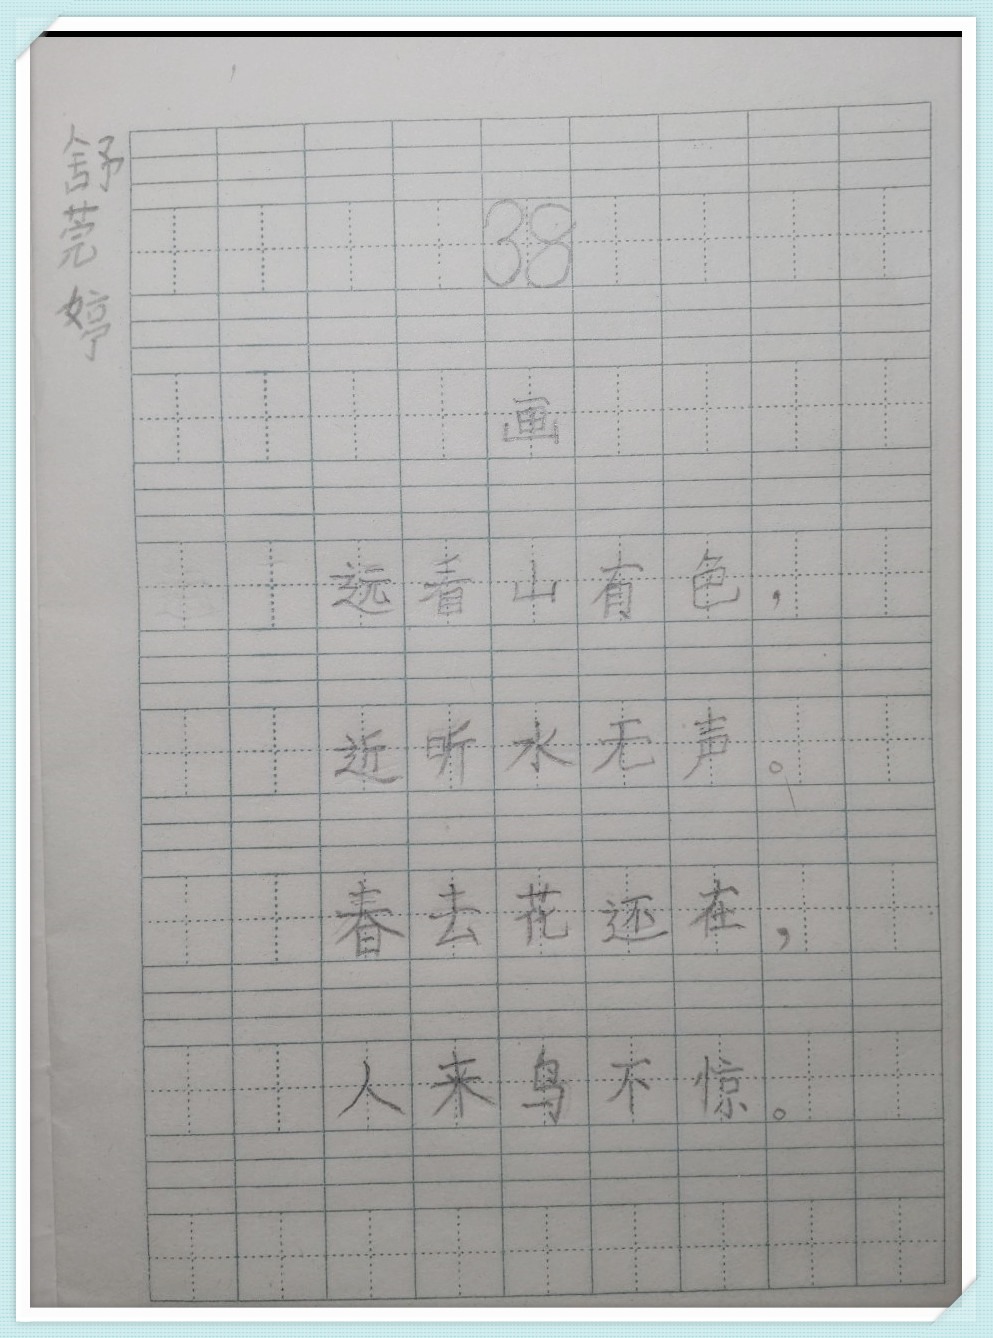 舒莞婷
38
画
远看山有色，
近听水无声。
春去花还在，
人来鸟不惊。